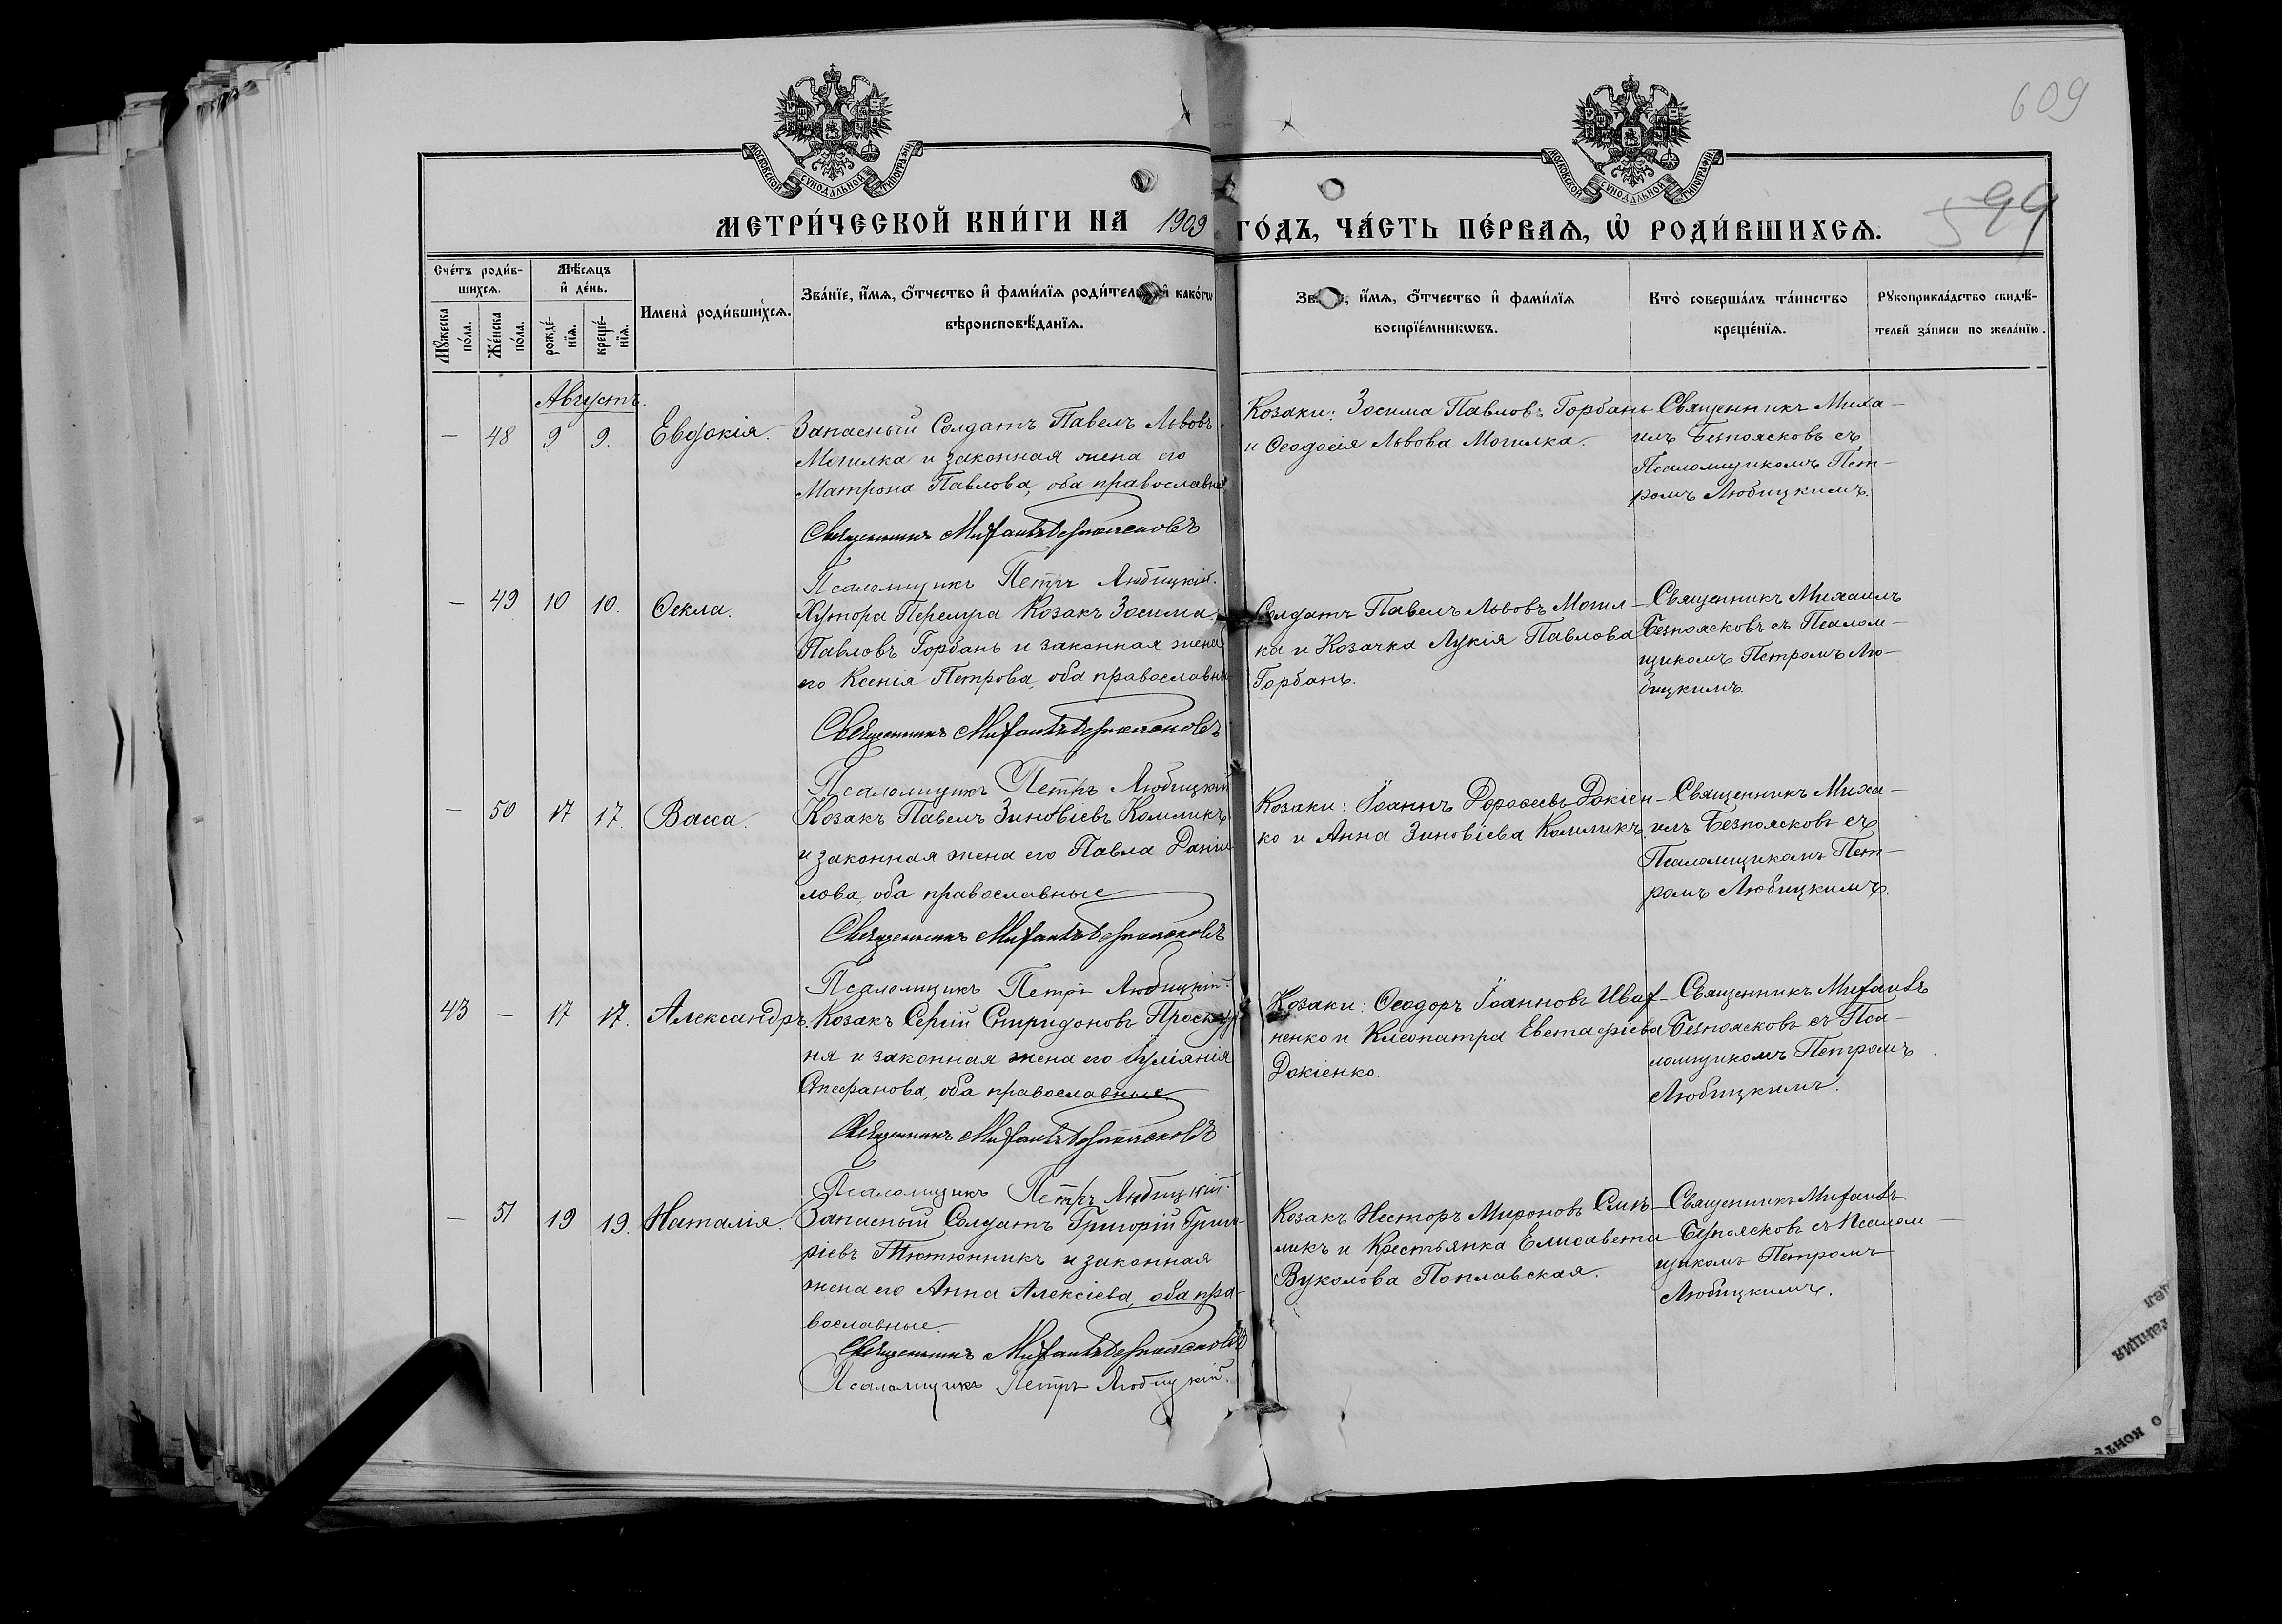 609
599
МОСКОВСКОЙ СУНОДАЛЬНОЙ ТИПОГРАФІИ
МОСКОВСКОЙ СУНОДАЛЬНОЙ ТИПОГРАФІИ
МЕТРИ́ЧЕСКОЙ КНИ́ГИ НА 1909 ГО́ДЪ, ЧА́СТЬ ПЕ́РВАѦ, Ѽ РОДИ́ВШИХСѦ.
Сче́тъ роди́в-
шихсѧ.
Мꙋ́жеска
по́ла.
Же́нска
по́ла.
Мѣ́сѧцъ
и҆ де́нь.
рожде́-
нїѧ.
креще́-
нїѧ.
Имена̀ роди́вшихсѧ.
Зва́нїе, и҆́мѧ, ѻ҆́тчество и҆ фами́лїѧ роди́тел и҆ како́гѡ
вѣроисповѣ́данїѧ.
и҆́мѧ, ѻ҆́тчество и҆ фами́лїѧ
воспрїе́мникѡвъ.
Кто̀ соверша́лъ та́инство
креще́нїѧ.
Рꙋкоприкла́дство свидѣ́-
телей за́писи по жела́нїю.
Августъ.
— 48 9 9. Евдокія.
Запасный Солдатъ Павелъ Львовъ
Могилка и законная жена его
Матрона Павлова, оба православные
Священникъ Михаилъ Безпоясковъ
Псаломщикъ Петръ Любицкій.
Козаки: Зосима Павловъ Горбань
и Ѳеодосія Львова Могилка.
Священникъ Миха-
илъ Безпоясковъ съ
Псаломщикомъ Пет-
ромъ Любицкимъ.
— 49 10 10. Ѳекла.
Хутора Перелуга Козакъ Зосима
Павловъ Горбань и законная жена
его Ксенія Петрова, оба православны
Священникъ Михаилъ Безпоясковъ
Псаломщикъ Петръ Любицкій
Солдатъ Павелъ Львовъ Могил-
ка и Козачка Лукія Павлова
Горбань.
Священникъ Михаилъ
Безпоясковъ съ Псалом-
щикомъ Петромъ Лю-
бицкимъ
— 50 17 17. Васса.
Козакъ Павелъ Зиновіевъ Комликъ
и законная жена его Павла Даніи
лова, оба православные
Священникъ Михаилъ Безпоясковъ
Псаломщикъ Петръ Любицкій.
Козаки: Іоаннъ Дороѳеевъ Докіен-
ко и Анна Зиновіева Комликъ.
Священникъ Миха-
илъ Безпоясковъ съ
Псаломщикомъ Пет-
ромъ Любицкимъ.
43 — 17 17. Александръ.
Козакъ Сергій Спиридоновъ Проскур
ня и законная жена его Іуліанія
Стефанова, оба православные
Священникъ Михаилъ Безпоясковъ
Псаломщикъ Петръ Любицкій.
Козаки: Ѳеодоръ Іоанновъ Ивах-
ненко и Клеопатра Евстафіева
Докіенко.
Священникъ Михаилъ
Безпоясковъ съ Пса-
ломщикомъ Петромъ
Любицкимъ.
— 51 19 19. Наталія.
Запасный Солдатъ Григорій Григо-
ріевъ Тютюнникъ и законная
жена его Анна Алексіева, оба пра-
вославные.
Священникъ Михаилъ Безпоясковъ
Псаломщикъ Петръ Любицкій.
Козакъ Несторъ Мироновъ
и Крестьянка Елисавета
Вуколова Поплавская.
Священникъ Михаилъ
Безпоясковъ съ Псалом-
щикомъ Петромъ
Любицкимъ.